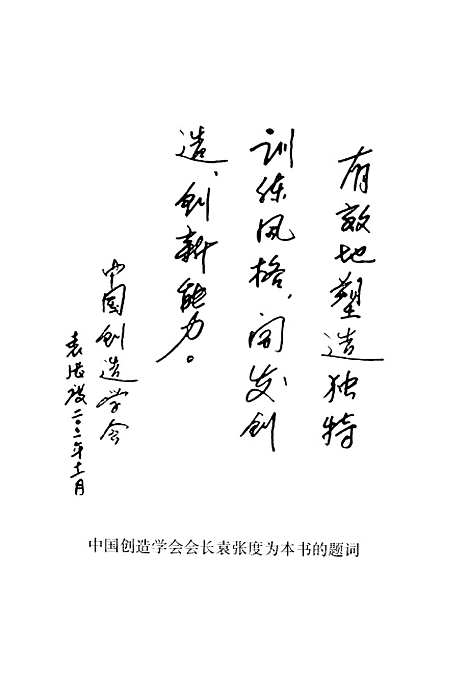 有效地塑造独特
训练风格，开发创
造、创新能力。
中国创造学会
袁张度 二〇〇二年十一月
中国创造学会会长袁张度为本书的题词